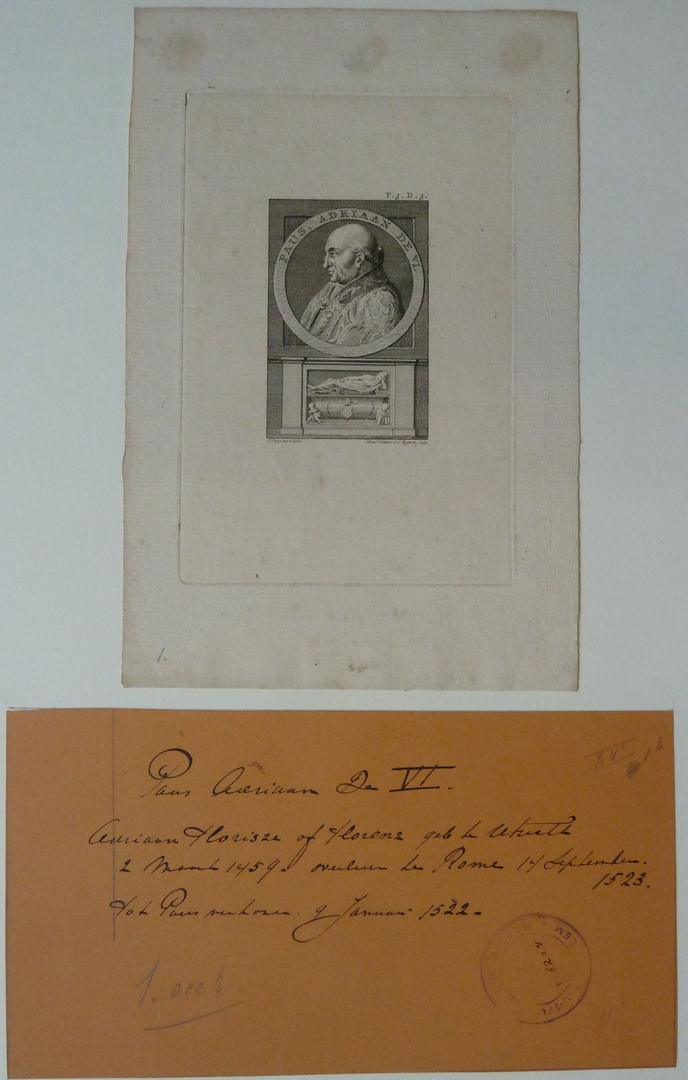 P. 3. D. 3.
PAUS. ADRIAAN DE VI.
1.
Paus Adriaan De VI.
Adriaan Florisze of Florenz geb te Utrecht
2 Maart 1459. overleden te Rome 14 September.
1523.
tot Paus verkozen. 9 Januari 1522.
XVI
1. acc. b.